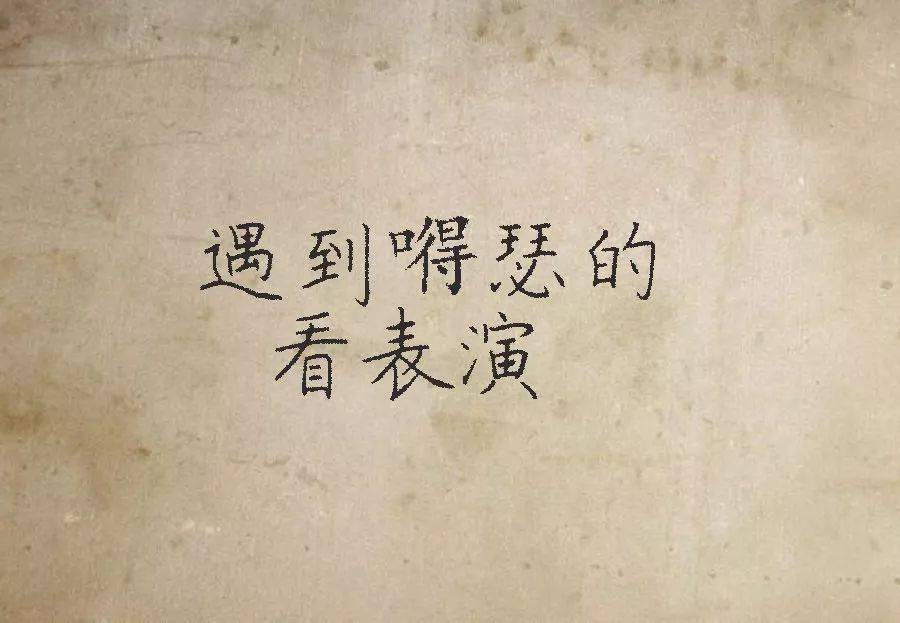 遇到嘚瑟的
看表演